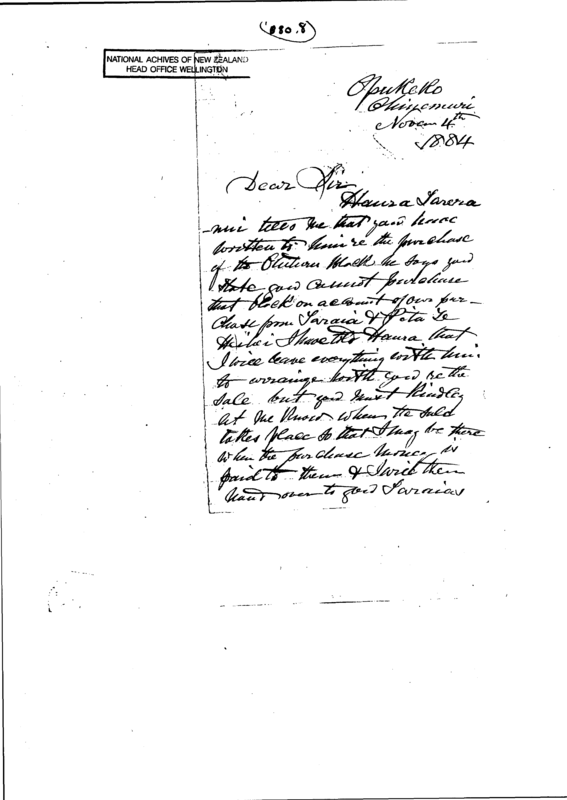 '880.8
NATIONAL ACHIVES OF NEW ZEALAND
HEAD OFFICE WELLINGTON
Opukeko
Ohinemuri
Novem 4th
1884
Dear Sir
Haura Tarera
-nui tells me that you have
written to him re the purchase
of the Block he says you
State you cannot purchase
that block on account of our pur-
chase from Taraia & Pita Te
I have told Haura that
I will leave everything with him
to arrange with you re the
Sale but you must Kindley
let me Know when the sald
takes place So that I may be there
when the purchase money is
paid to them & I will then
hand over to you Taraias